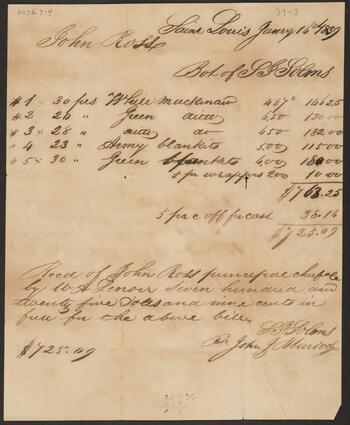 4026.714
39-3
Saint Louis Janry 16th 1839
John Ross
Bot of S P Solms
#1 x 30 prs White mackinaw 487½ 146.25
#2 26 " Green ditto 450 130.00
#3 x 28 " ditto do 650 182.00
"4 23 " Army blankits 500 115.00
"5 x 30 " Green blankits 600 180.00
5 pr wrappers 200 10.00
$763.25
5 pr c off for cast 38.16
$725.09
Recd of John Ross principal chief
by W A Lenoir Seven hundred and
twenty five Dolls and nine cents in
full for the above bill
S P Solms
$725.09
Pr John J Murdoch